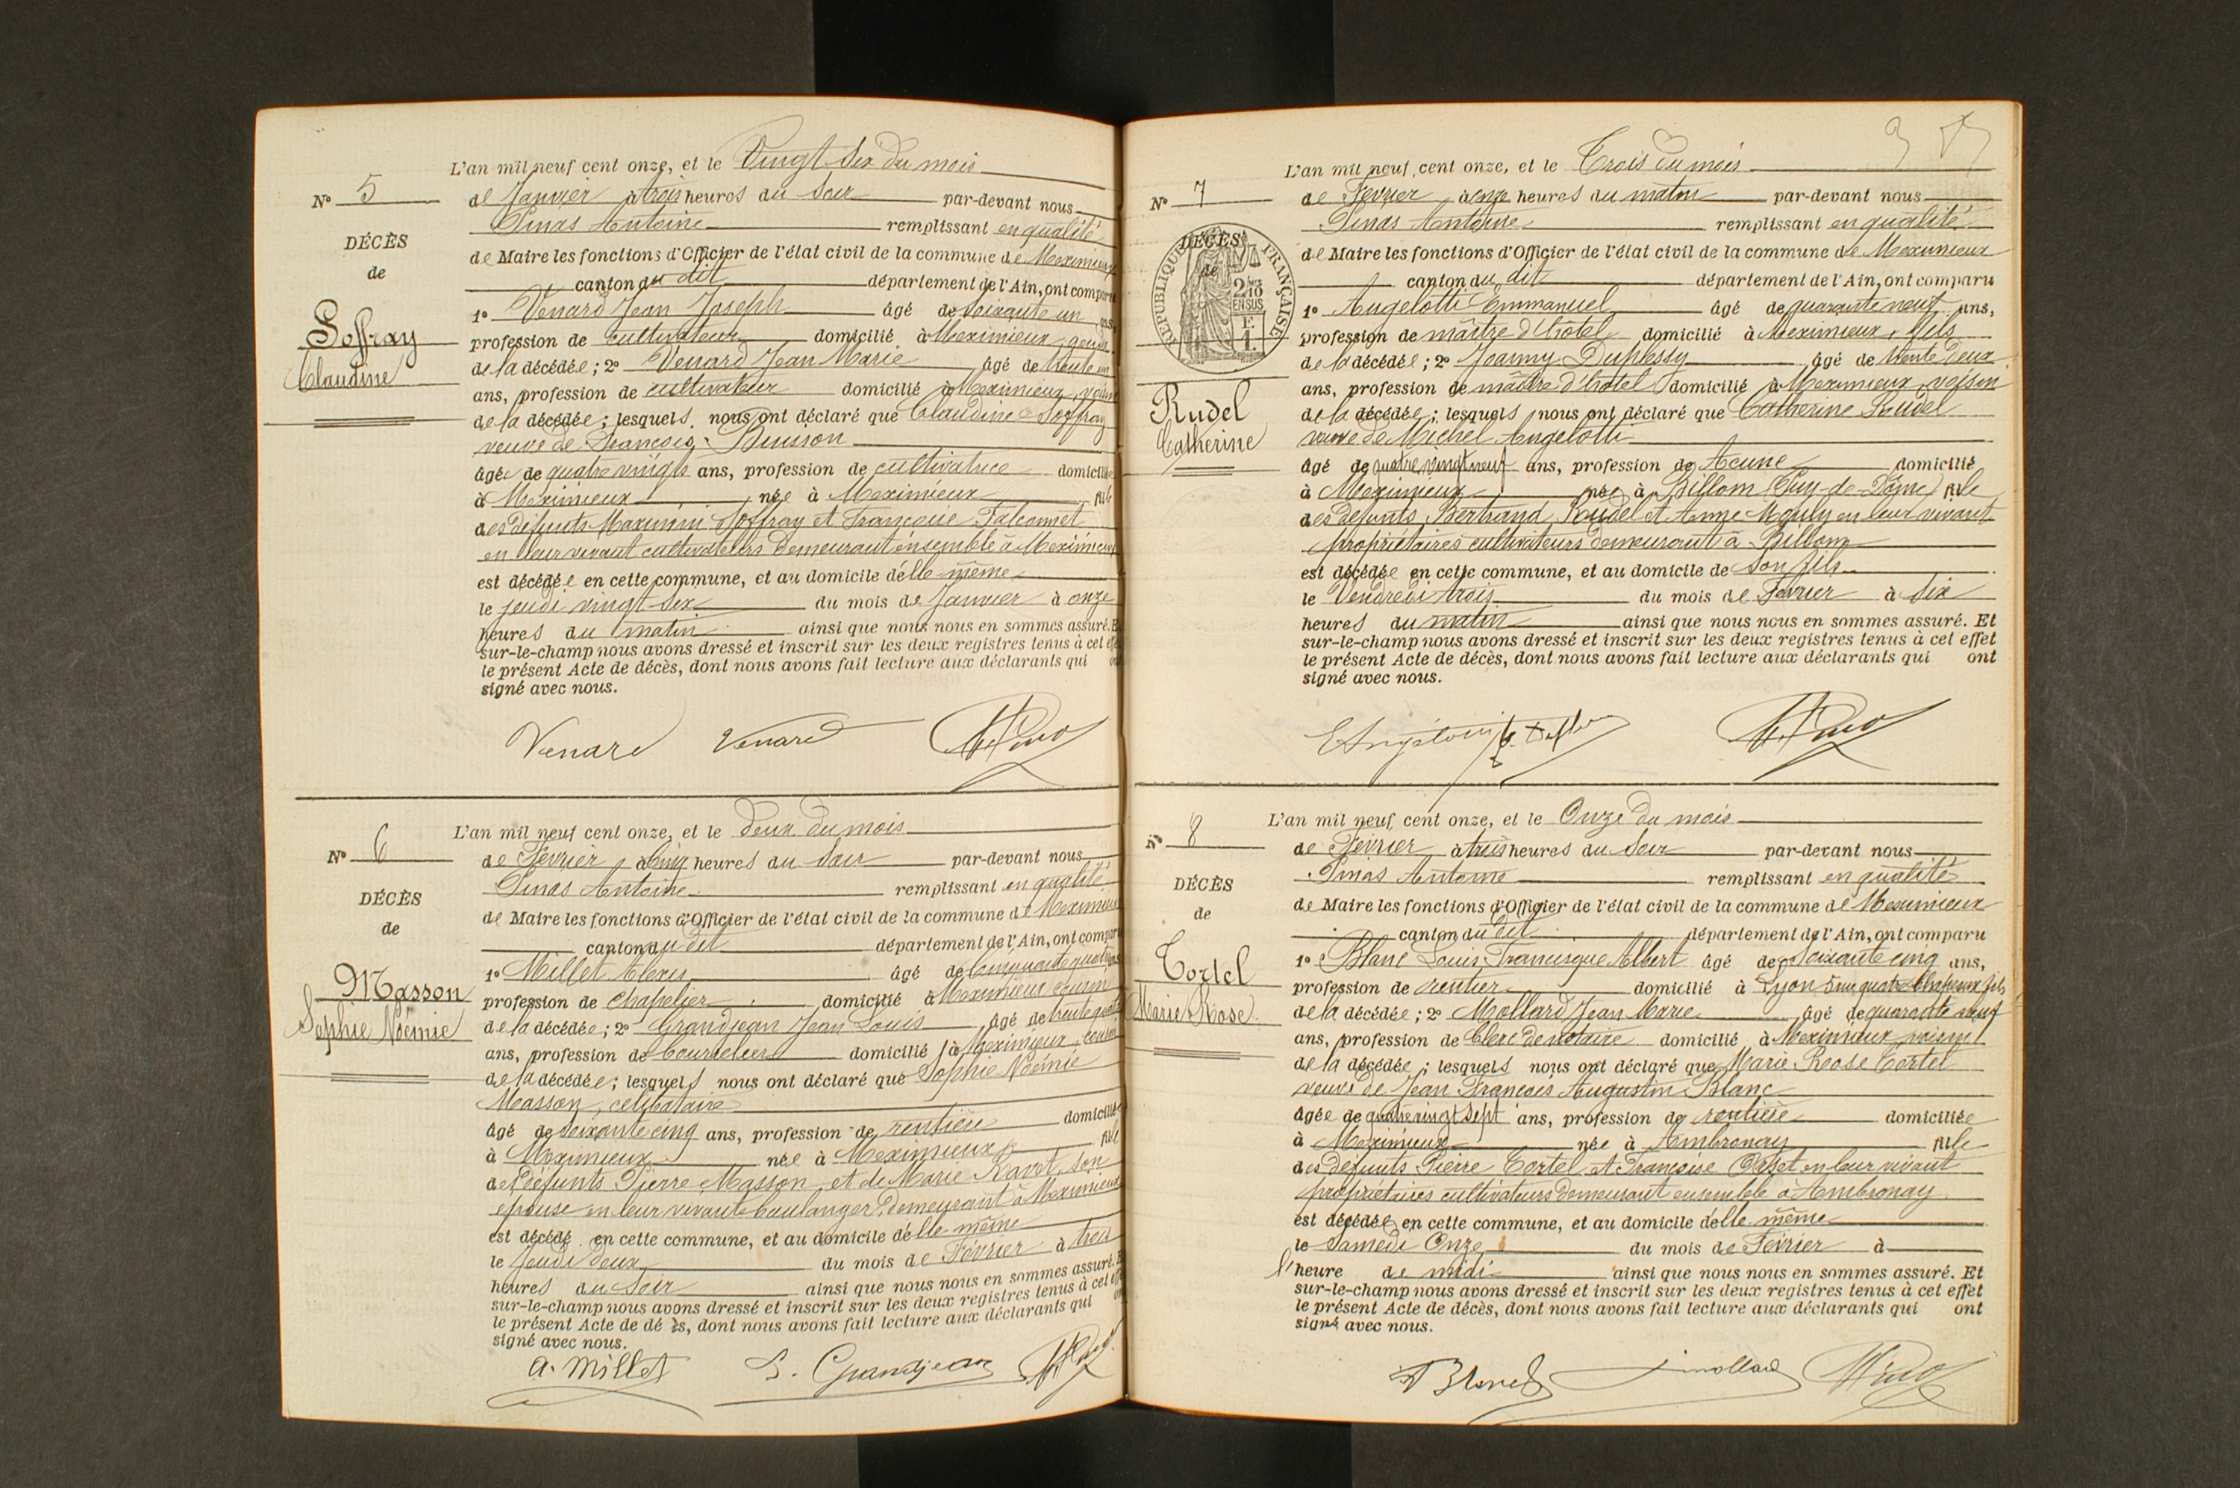 L'an mil neuf cent onze, et le Vingt Six du mois
N° 5
de Janvier à trois heures du Soir par-devant nous
Pinas Antoine remplissant en qualité
DÉCÈS
de Maire les fonctions d'Officier de l'état civil de la commune de Meximieux
de
canton du dit département de l'Ain, ont comparu
1° Venard Jean Joseph âgé de Soixante un ans,
Soffray
profession de cultivateur domicilié à Meximieux,
de la décédée; 2° Venard Jean Marie âgé de trente un
Claudine
ans, profession de cultivateur domicilié à Meximieux, voisin
de la décédée; lesquels nous ont déclaré que Claudine Soffray
veuve de François Buisson
âgée de quatre vingts ans, profession de cultivatrice domiciliée
à Meximieux née à Meximieux fille
des défunts Maximin Soffray et Françoise Falconnet
en leur vivant cultivateurs demeurant ensemble à Meximieux
est décédée en cette commune, et au domicile d'elle même
le jeudi vingt Six du mois de Janvier à onze
heures du matin ainsi que nous nous en sommes assuré. Et
sur-le-champ nous avons dressé et inscrit sur les deux registres tenus à cet effet
le présent Acte de décès, dont nous avons fait lecture aux déclarants qui ont
signé avec nous.
Venard Venard
L'an mil neuf cent onze, et le deux du mois
N° 6
de Février à Cinq heures du Soir par-devant nous
Pinas Antoine remplissant en qualité
DÉCÈS
de Maire les fonctions d'Officier de l'état civil de la commune de Meximieux
de
canton du dit département de l'Ain, ont comparu
1° Millet Alexis âgé de Cinquante quatre ans
Masson
profession de Chapelier domicilié à Meximieux cousin
Sophie Noémie
de la décédée; 2° Grandjean Jean Louis âgé de trente quatre
ans, profession de Bourrelier domicilié à Meximieux, cousin
de la décédée; lesquels nous ont déclaré que Sophie Noémie
Masson, célibataire
âgé de Soixante cinq ans, profession de rentière domiciliée
à Meximieux née à Meximieux fille
des défunts Pierre Masson et de Marie Ravet, son
épouse en leur vivant boulanger demeurant à Meximieux
est décédé en cette commune, et au domicile d'elle même
le Jeudi deux du mois de Février à trois
heures du Soir ainsi que nous nous en sommes assuré. Et
sur-le-champ nous avons dressé et inscrit sur les deux registres tenus à cet effet
le présent Acte de dé ès, dont nous avons fait lecture aux déclarants qui ont
signé avec nous.
A. Millet L. Grandjean
L'an mil neuf cent onze, et le Trois du mois
N° 7
de Février à onze heures du matin par-devant nous
Pinas Antoine remplissant en qualité
DÉCÈS
de Maire les fonctions d'Officier de l'état civil de la commune de Meximieux
de
canton du dit département de l'Ain, ont comparu
RÉPUBLIQUE FRANÇAISE
2/10 EN SUS
F. 1.
1° Angelotti Emmanuel âgé de quarante neuf ans,
profession de maître d'hôtel domicilié à Meximieux, fils
de la décédée; 2° Jeanny Duplessy âgé de trente deux
ans, profession de maître d'hôtel domicilié à Meximieux, voisin
Rudel
de la décédée; lesquels nous ont déclaré que Catherine Roudel
Catherine
veuve de Michel Angelotti
âgé de quatre vingt neuf ans, profession de Aucune domicilié
à Meximieux née à Billom (Puy-de-Dôme) fille
des défunts Bertrand Roudel et Anne Mouly en leur vivant
propriétaires cultivateurs demeurant à Billom
est décédée en cette commune, et au domicile de Son fils
le Vendredi trois du mois de Février à Six
heures du matin ainsi que nous nous en sommes assuré. Et
sur-le-champ nous avons dressé et inscrit sur les deux registres tenus à cet effet
le présent Acte de décès, dont nous avons fait lecture aux déclarants qui ont
signé avec nous.
L'an mil neuf cent onze, et le Onze du mois
N° 8
de Février à trois heures du Soir par-devant nous
Pinas Antoine remplissant en qualité
DÉCÈS
de Maire les fonctions d'Officier de l'état civil de la commune de Meximieux
de
canton du dit département de l'Ain, ont comparu
Tortel
1° Blanc Louis Francisque Albert âgé de Soixante cinq ans,
profession de rentier domicilié à Lyon 5 rue quatre Chapeaux fils
Marie Rose
de la décédée; 2° Mollard Jean Marie âgé de quarante neuf
ans, profession de Clerc de notaire domicilié à Meximieux voisin
de la décédée; lesquels nous ont déclaré que Marie Rose Tortel
veuve de Jean François Augustin Blanc
âgée de quatre vingt Sept ans, profession de rentière domiciliée
à Meximieux née à Ambronay fille
des défunts Pierre Tortel et Françoise Orset en leur vivant
propriétaires cultivateurs demeurant ensemble à Ambronay
est décédée en cette commune, et au domicile d'elle même
le Samedi Onze du mois de Février à
l'heure de midi ainsi que nous nous en sommes assuré. Et
sur-le-champ nous avons dressé et inscrit sur les deux registres tenus à cet effet
le présent Acte de décès, dont nous avons fait lecture aux déclarants qui ont
signé avec nous.
A Blanc Mollard